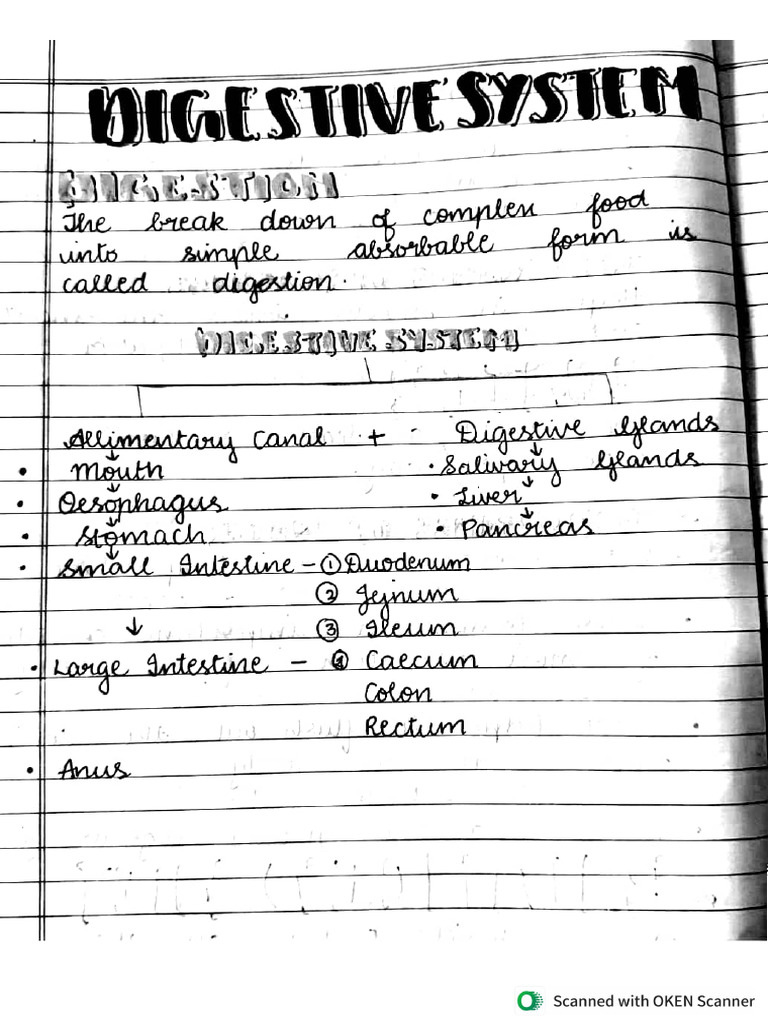 DIGESTIVE SYSTEM
DIGESTION
The break down of complex food
into simple absorbable form is
called digestion.
DIGESTIVE SYSTEM
Allimentary Canal + Digestive Glands
• Mouth • Salivary Glands
• Oesophagus • Liver
• Stomach • Pancreas
• Small Intestine - ① Duodenum
② Jejnum
↓ ③ Ileum
• Large Intestine - Caecum
Colon
Rectum
• Anus
Scanned with OKEN Scanner